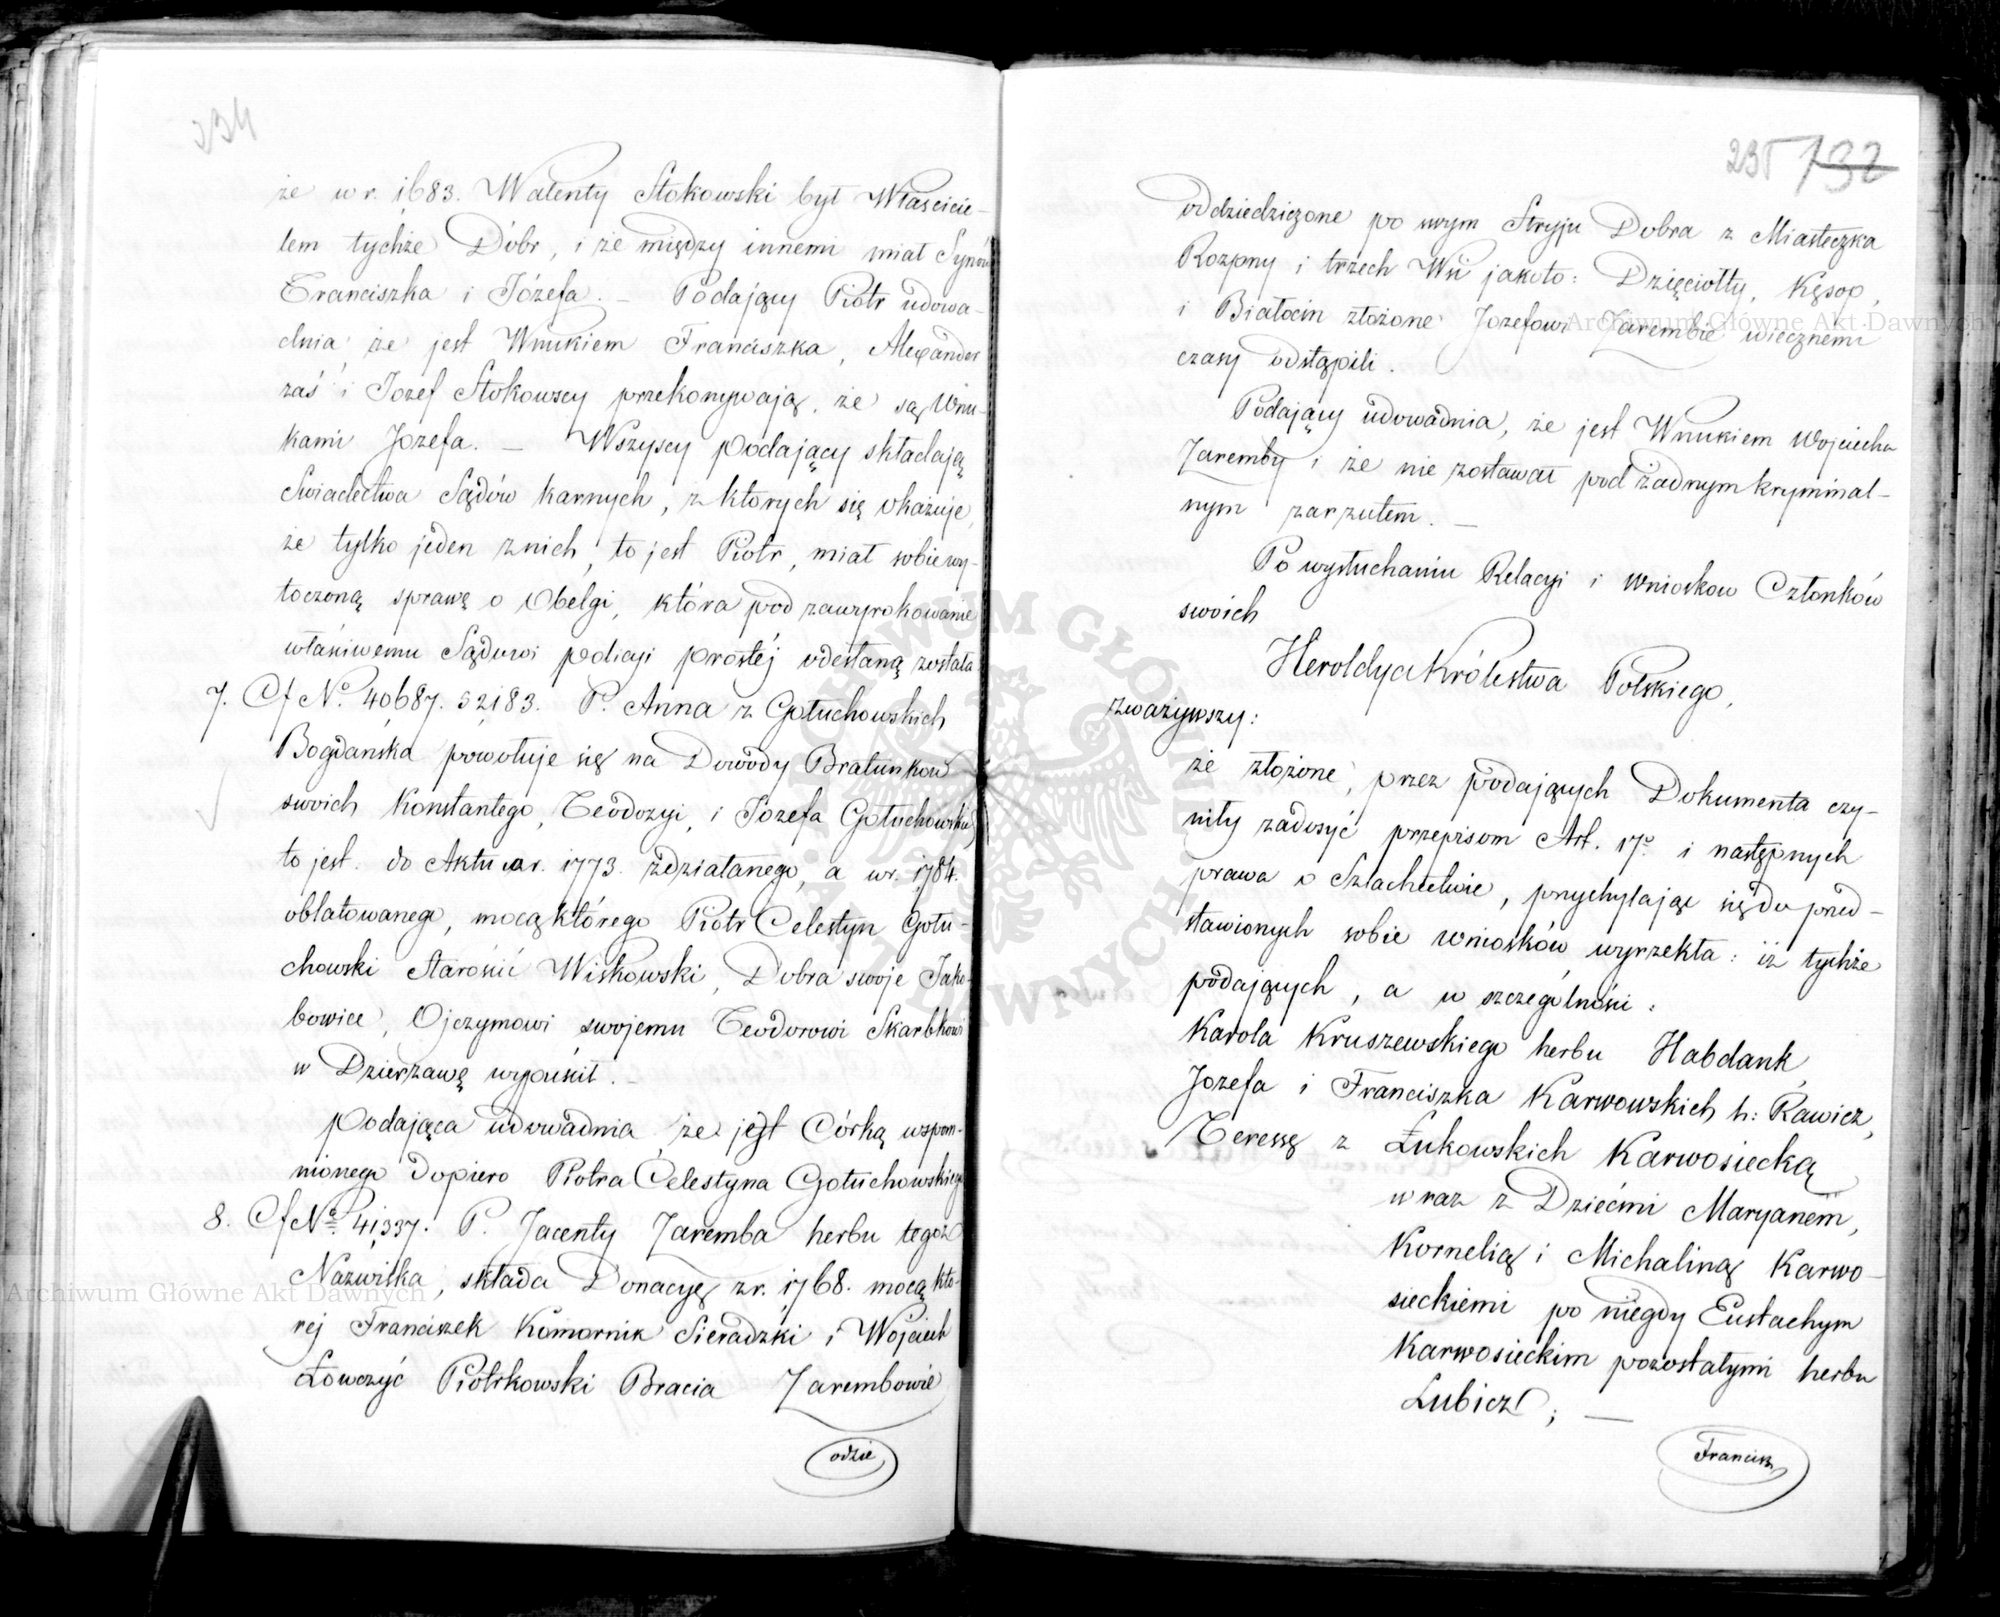 234
że w r. 1683. Walenty Stokowski był Właścicie-
lem tychże Dóbr, i że między innemi miał Synów
Franciszka i Józefa. — Podający Piotr udowa-
dnia, że jest Wnukiem Franciszka, Alexander
zaś i Jozef Stokowscy przekonywają, że są Wnu-
kami Jozefa. — Wszyscy podający składają
Swiadectwa Sądów karnych, z których się okazuje,
że tylko jeden z nich, to jest Piotr, miał sobie wy-
toczoną sprawę o Obelgi, która pod zawyrokowanie
właściwemu Sądowi policyi prostéj odesłaną została
7. Cf No. 40687. 52183. P. Anna z Gołuchowskich
Bogdańska powołuje się na Dowody Bratunkow
swoich Konstantego, Teodozyi, i Jozefa Gołuchowskich
to jest. do Aktu w r. 1773. zdziałanego, a w r. 1784.
oblatowanego, mocą którego Piotr Celestyn Gołu-
chowski Starościć Wiskowski, Dobra swoje Jako-
bowice, Ojczymowi swojemu Teodorowi Skarbkowi
w Dzierzawę wypuścił. —
Podająca udowadnia, że jest Córką wspom-
nionego dopiero Piotra Celestyna Gołuchowskiego
8. Cf No. 41337. P. Jacenty Zaremba herbu tegoż
Nazwiska, składa Donacyę z r. 1768. mocą któ-
rej Franciszek Komornik Sieradzki i Wojciech
Łowczyć Piotrkowski Bracia Zarembowie
odzie
235 132
oddziedziczone po swym Stryju Dobra z Miasteczka
Rozpny i trzech Wsi jakoto: Dzięciołty, Kęsop,
i Białocin złożone Jozefowi Zarembie wiecznemi
czasy odstąpili.
Podający udowadnia, że jest Wnukiem Wojciecha
Zaremby i że nie zostawał pod żadnym kryminal-
nym zarzutem. —
Po wysłuchaniu Relacyi i Wniosków Członków
swoich
Heroldya Królestwa Polskiego,
zważywszy:
że złożone, przez podających Dokumenta czy-
niły zadosyć przepisom Art. 17o. i następnych
prawa o Szlachectwie, przychylając się do przed-
stawionych sobie wniosków wyrzekła: iż tychże
podających, a w szczególności:
Karola Kruszewskiego herbu Habdank
Jozefa i Franciszka Karwowskich h: Rawicz,
Teressę z Łukowskich Karwosiecką
wraz z Dziećmi Maryanem,
Kornelią i Michaliną Karwo-
sieckiemi po niegdy Eustachym
Karwosieckim pozostałymi herbu
Lubicz; —
Francisz
Archiwum Główne Akt Dawnych
Archiwum Główne Akt Dawnych
ARCHIWUM GŁÓWNE AKT DAWNYCH